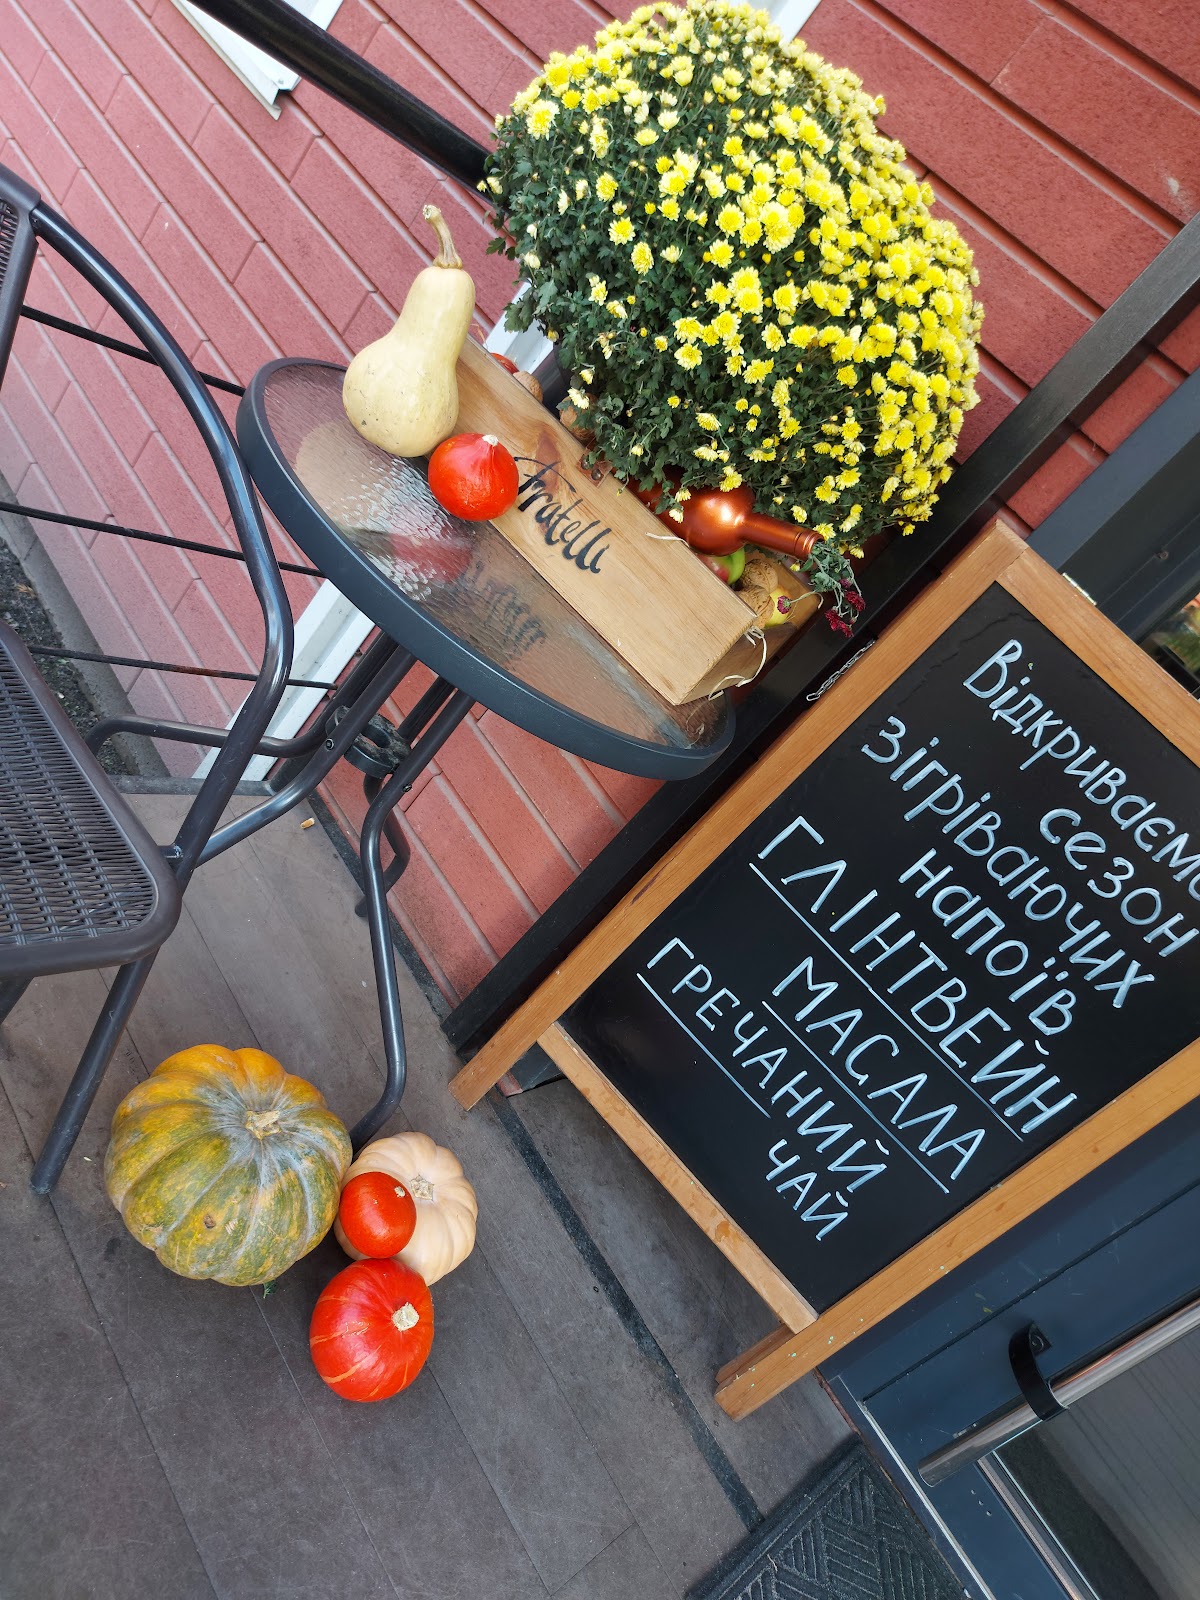 Fratelli
Відкриваємо
сезон
зігріваючих
напоїв
ГЛІНТВЕЙН
МАСАЛА
ГРЕЧАНИЙ
ЧАЙ